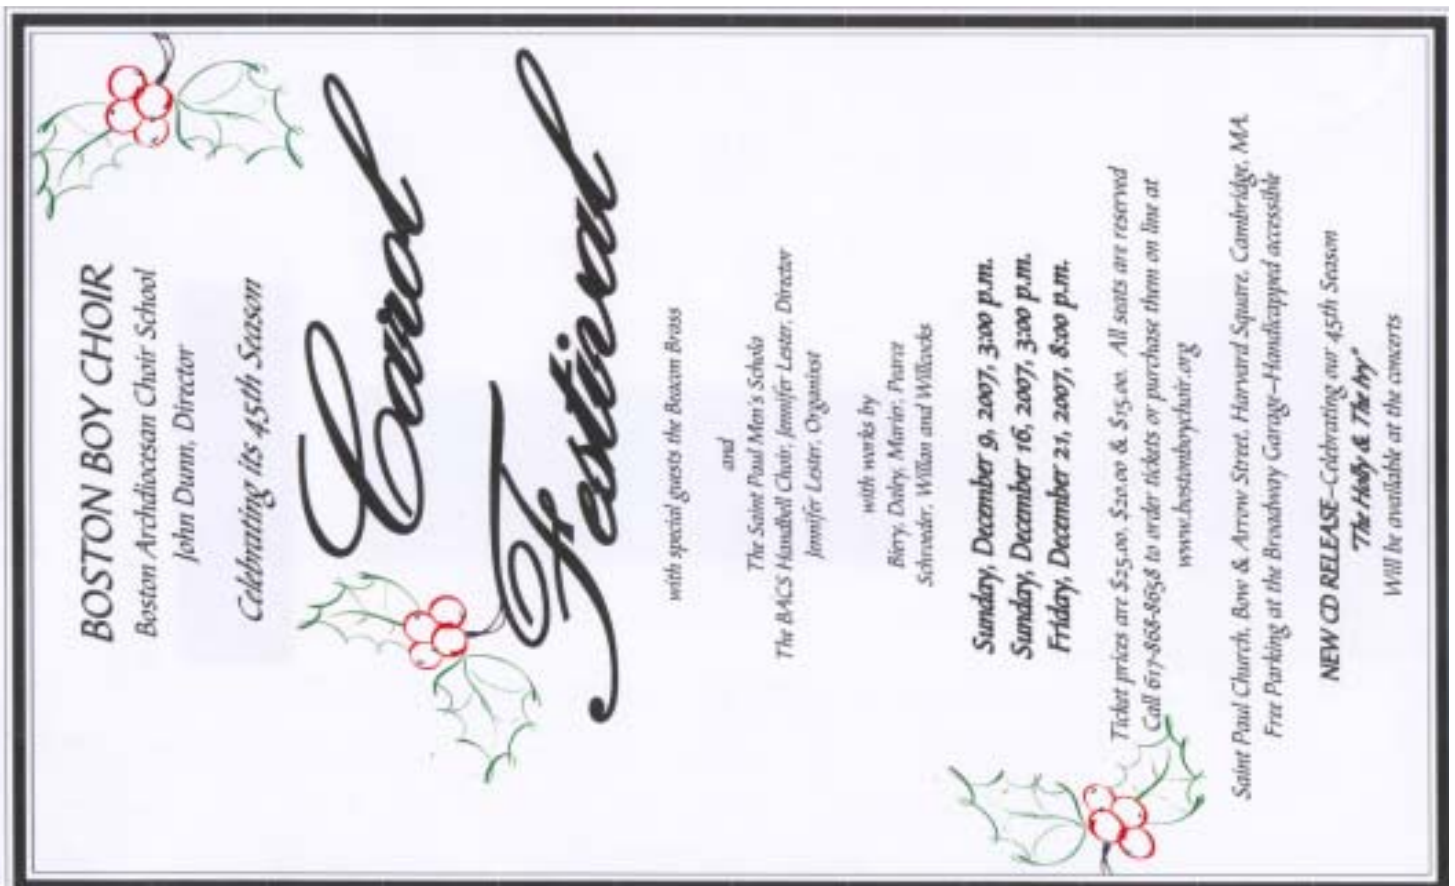 BOSTON BOY CHOIR
Boston Archdiocesan Choir School
John Dunn, Director
Celebrating its 45th Season
Carol
Festival
with special guests the Beacon Brass
and
The Saint Paul Men's Schola
The BACS Handbell Choir, Jennifer Lester, Director
Jennifer Lester, Organist
with works by
Biery, Daley, Marier, Pearce
Schroeder, Willan and Willcocks
Sunday, December 9, 2007, 3:00 p.m.
Sunday, December 16, 2007, 3:00 p.m.
Friday, December 21, 2007, 8:00 p.m.
Ticket prices are $25.00, $20.00 & $15.00. All seats are reserved
Call 617-868-8658 to order tickets or purchase them on line at
www.bostonboychoir.org
Saint Paul Church, Bow & Arrow Street, Harvard Square, Cambridge, MA.
Free Parking at the Broadway Garage–Handicapped accessible
NEW CD RELEASE–Celebrating our 45th Season
"The Holly & The Ivy"
Will be available at the concerts